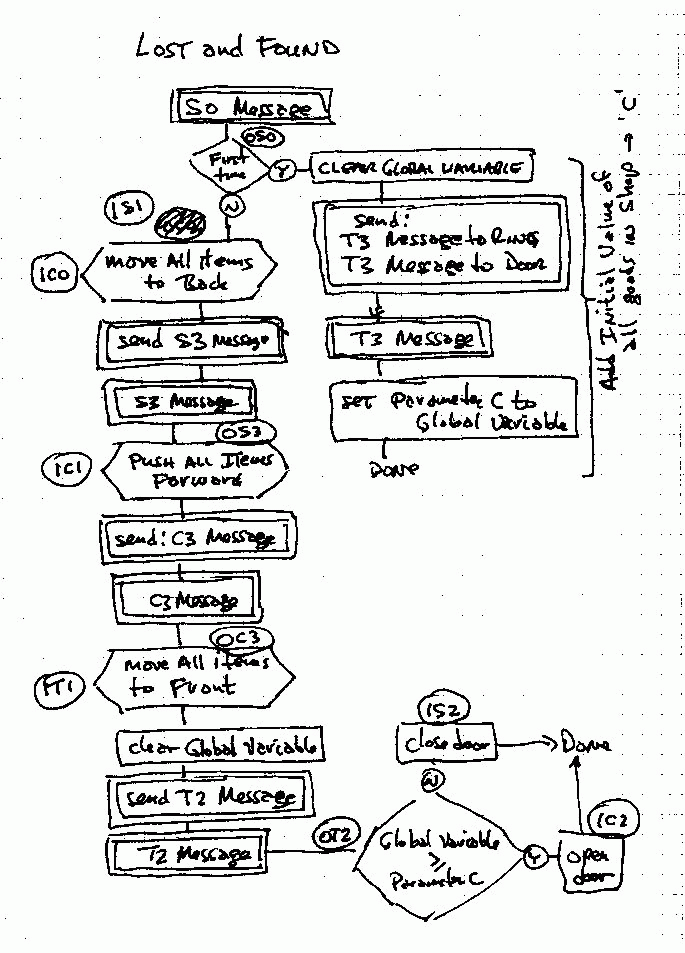 LOST and FOUND
S0 Message
OS0
First
time
Y
CLEAR GLOBAL VARIABLE
N
IS1
send:
T3 Message to RINGS
T3 Message to Door
IC0
move All Items
to Back
send S3 Message
T3 Message
S3 Message
SET Parameter C to
Global Variable
OS3
IC1
PUSH ALL ITEMS
Forward
DONE
send: C3 Message
C3 Message
OC3
move All items
to Front
clear Global Variable
send T2 Message
T2 Message
OT2
Global Variable
≥
Parameter C
N
IS2
Close door
Done
Y
IC2
open
door
Add Initial Value of
all goods in Shop → 'C'